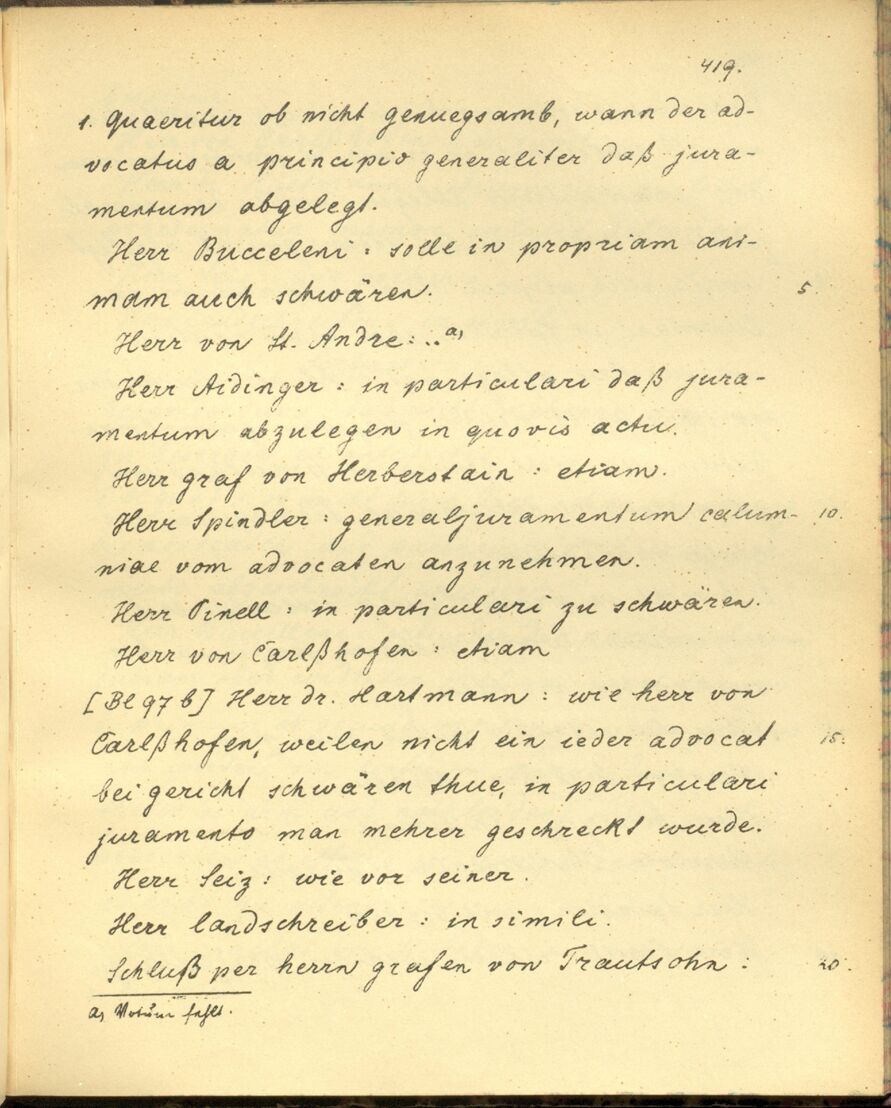 419.
1. Quaeritur ob nicht genuegsamb, wann der ad-
vocatus a principio generaliter daß jura-
mentum abgelegt.
Herr Bucceleni : solle in propriam ani-
mam auch schwären. 5
Herr von St. Andre: ..a)
Herr Aidinger : in particulari daß jura-
mentum abzulegen in quovis actu.
Herr graf von Herberstain : etiam.
Herr Spindler : generaljuramentum calum- 10.
niae vom advocaten anzunehmen.
Herr Pinell : in particulari zu schwären.
Herr von Carlßhofen : etiam
[Bl 97 b] Herr dr. Hartmann : wie herr von
Carlßhofen, weilen nicht ein ieder advocat 15.
bei gericht schwären thue, in particulari
juramento man mehrer geschreckt wurde.
Herr Seiz : wie vor seiner.
Herr landschreiber : in simili.
Schluß per herrn grafen von Trautsohn : 20.
a) Votum fehlt.